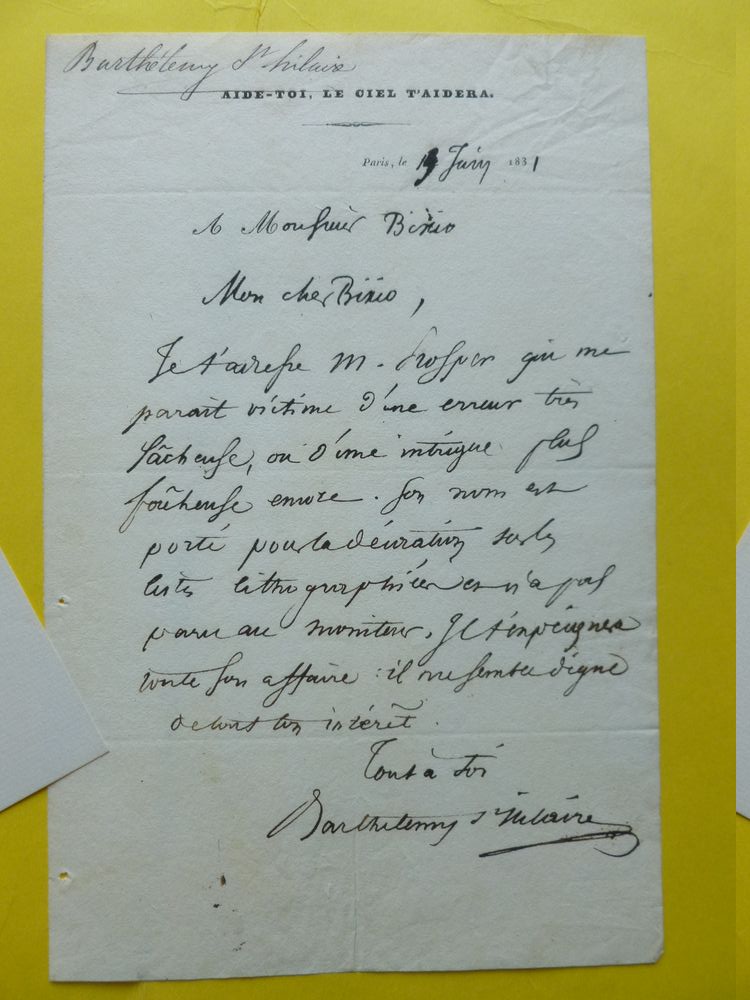 Barthélemy St hilaire
AIDE-TOI, LE CIEL T'AIDERA.
Paris, le Juin 1831
A Monsieur Bixio
Mon cher Bixio,
Je t'adresse M. Prosper qui me
parait victime d'une erreur très
fâcheuse, ou d'une intrigue plus
fâcheuse encore. Son nom est
porté pour la décoration sur les
listes lithographiées et n'a pas
paru au moniteur. Il t'expliquera
toute son affaire : il me semble digne
de tout ton intérêt.
Tout à toi
Barthélemy St Hilaire